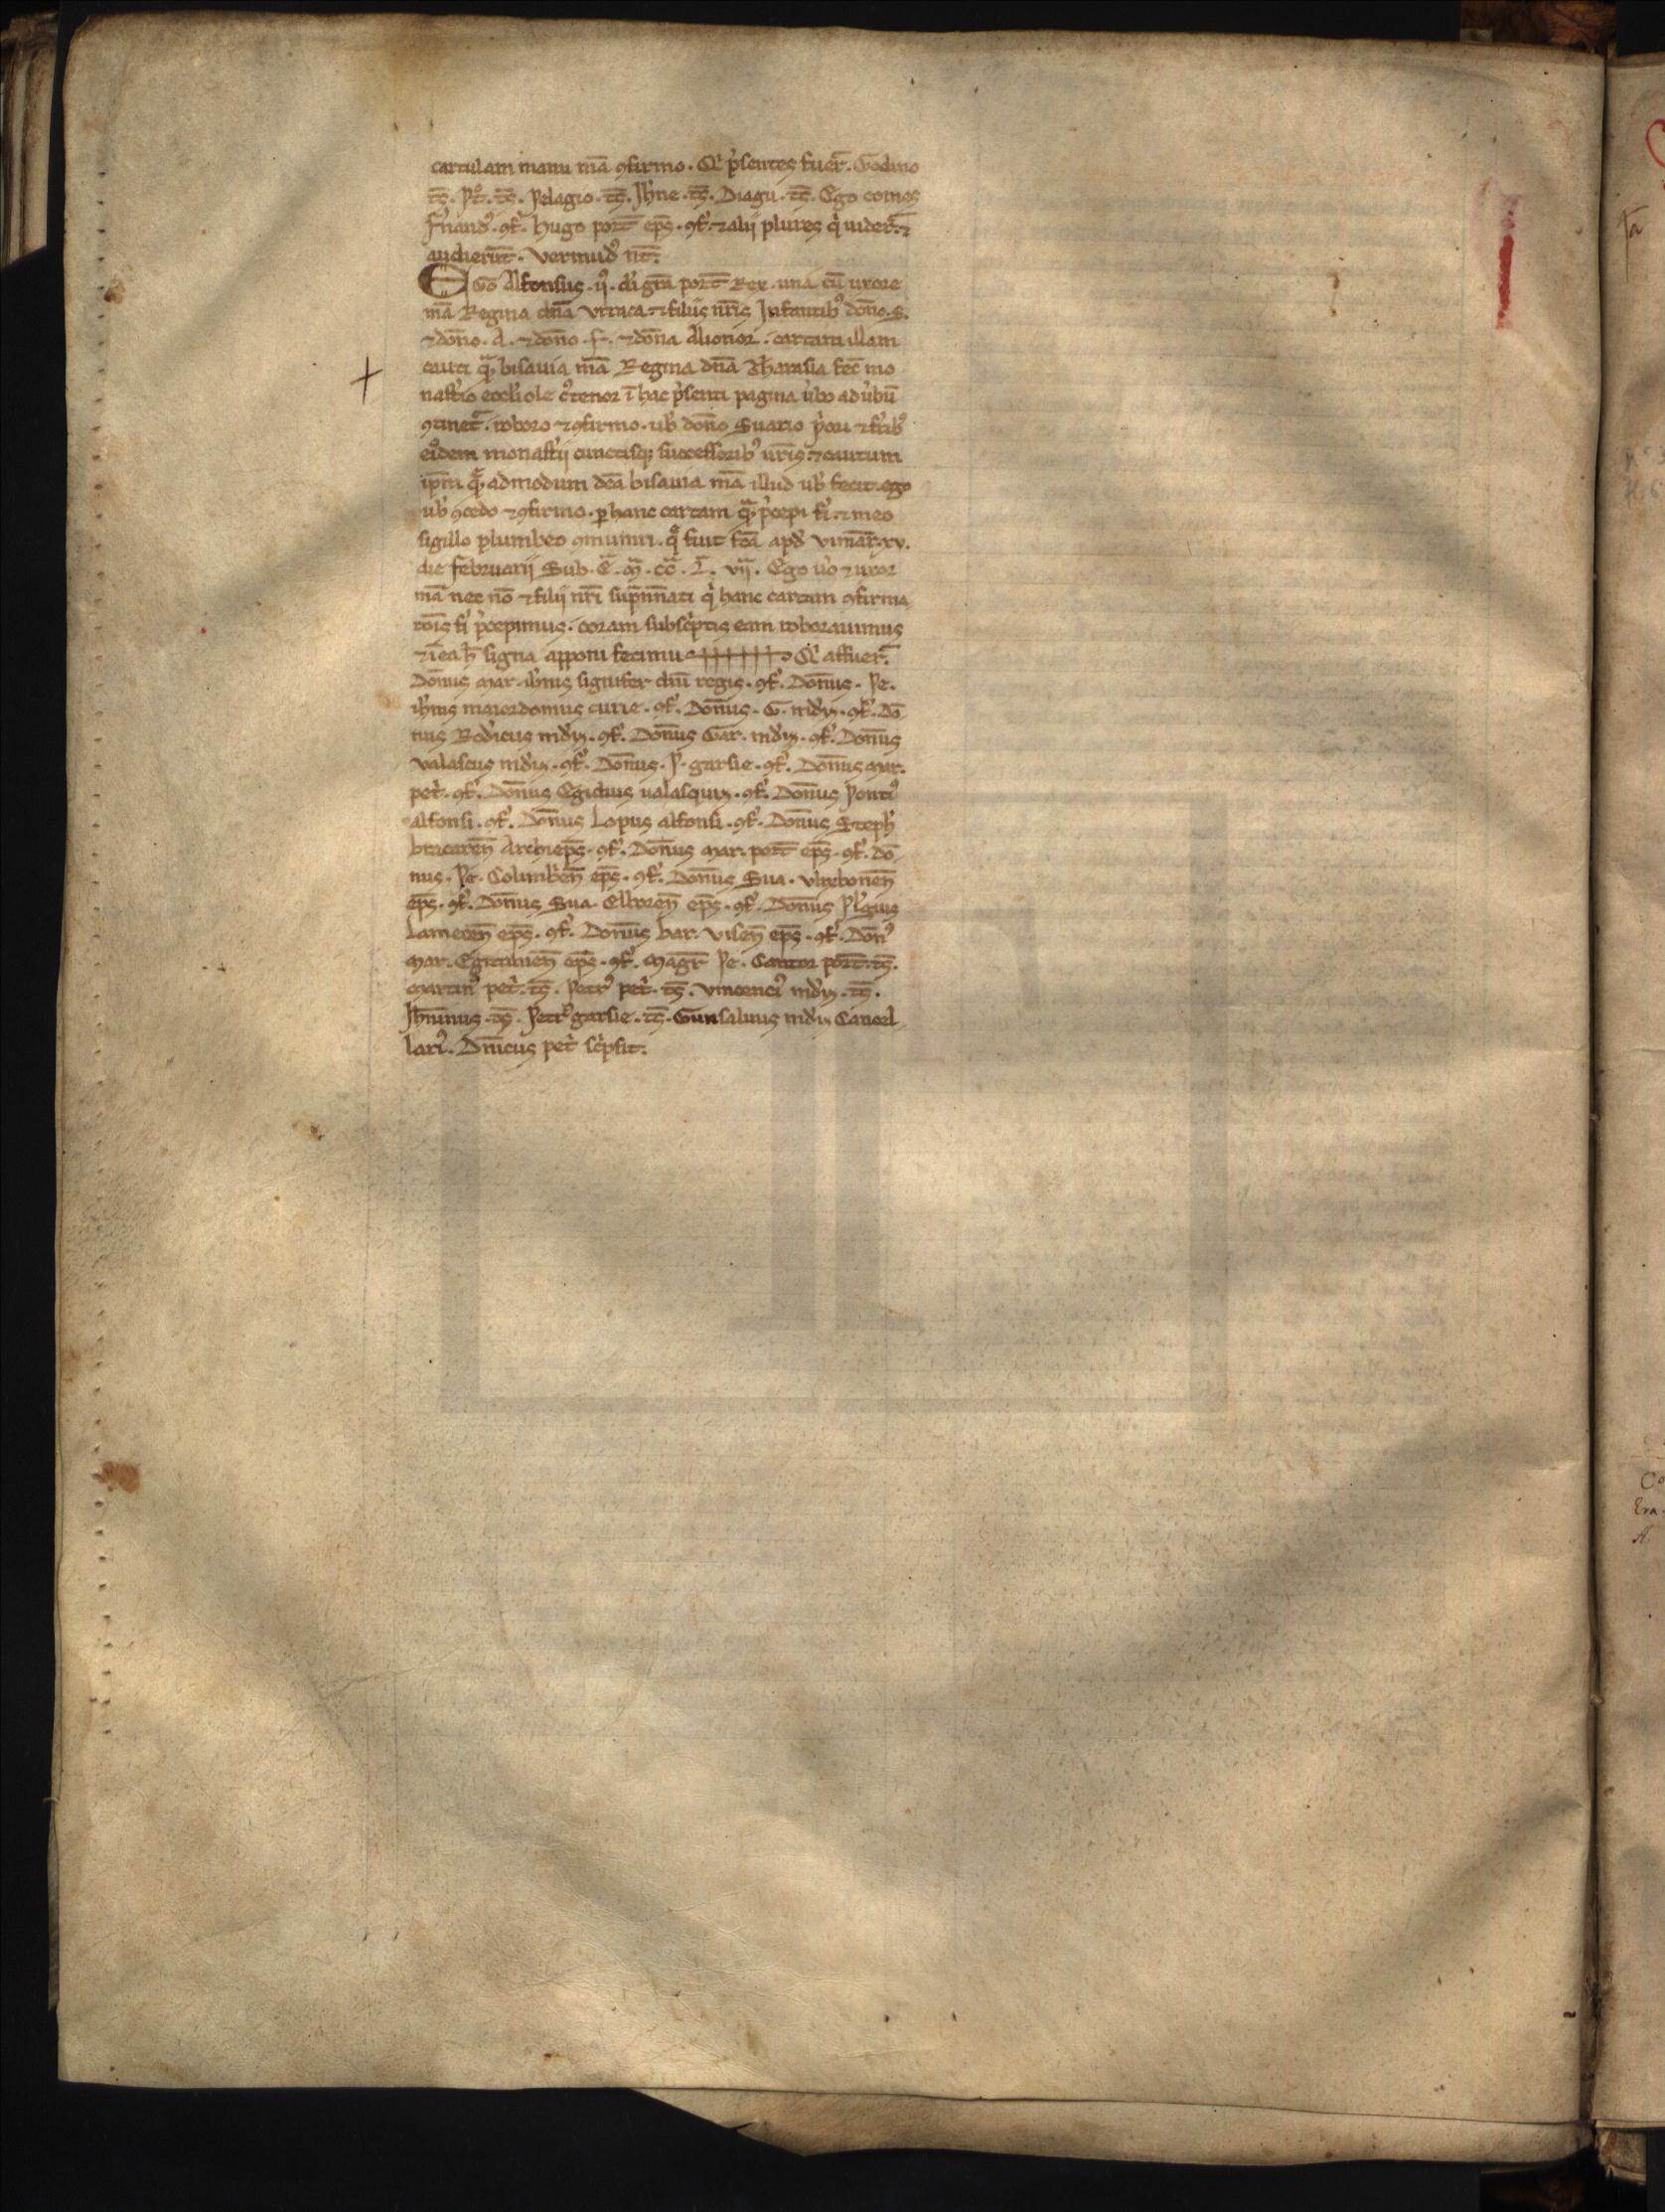 cartulam manu mā ꝯfirmo. Qi p̃sentes fuer̄. Godino
tꝭ̄. Pet̊. tꝭ̄. Pelagio. tꝭ̄. Jħne. tꝭ̄. Diagu. tꝭ̄. Ego comes
Fꝰnandꝰ. ꝯf̉. Hugo port̄ ep̄s. ꝯf̉. ⁊ alij plures q̇ uider̄. ⁊
audierūt. Vermudꝰ nt̄.
Ego Alfonsus. ijꝰ. di gr̄a port̄ Rex. una cū uxore
mā Regina dn̄a Vrraca. ⁊ filiis nr̄is Infantibꝰ don̄o. S.
⁊ don̄o. A. ⁊ don̄o. F. ⁊ don̄a Alionor. cartam illam
cauti q̄ bisauia mā Regina dn̄a Tharasia fec̄ mo
nast̉io eccl̉iole cꝰ tenor ī hac p̉senti pagina ủbo ad ủbū
ꝯtinet̄. roboro ⁊ ꝯfirmo. uob̉ don̄o Suario p̉ori ⁊ fr̉ibꝰ
eiꝰdem monast̉ij cunctisq; successoribꝰ ur̄is. ⁊ cautum
ip̄m q̄ admodum dc̄a bisauia mā illud uob̉ fecit. ego
uob̉ ꝯcedo ⁊ ꝯfirmo. ꝑ hanc cartam q̄ p̉cepi fỉ. ⁊ meo
sigillo plumbeo ꝯmuniri. q̄ fuit fc̄a apd̉ Vimar̄. xv.
die februarij Sub. E. M. CC. L. vij. Ego ủo ⁊ uxor
mā nec nō ⁊ filij nr̄i sup̄nn̄ati q̇ hanc cartam ꝯfirma
tōis fỉ p̉cepimus. coram subsc̉ptis eam roborauimus
⁊ ī ea h̉ signa apponi fecimus +++++++ Qi affuer̄.
Don̄us Mar. ioħnis signifer dn̄i regis. ꝯf̉. Don̄us. Pe.
ioħnis maiordomus curie. ꝯf̉. Don̄us. G. md̉iz. ꝯf̉. Dō
nus Rod̉icus md̉iz. ꝯf̉. Don̄us Gar. md̉iz. ꝯf̉. Don̄us
Valascus md̉iz. ꝯf̉. Don̄us. P. garsie. ꝯf̉. Don̄us Mar.
pet̉. ꝯf̉. Don̄us Egidius ualasquiz. ꝯf̉. Don̄us Pontiꝰ
alfonsi. ꝯf̉. Don̄us Lopus alfonsi. ꝯf̉. Don̄us Steph̉
bracaren̄ Archiep̄s. ꝯf̉. Don̄us Mar. port̄ ep̄s. ꝯf̉. Dō
nus. Pe. Colimbꝰen̄ ep̄s. ꝯf̉. Don̄us Sua. Vlixbonen̄
ep̄s. ꝯf̉. Don̄us Sua. Elboren̄ ep̄s. ꝯf̉. Don̄us Pl̉agius
Lamecen̄ ep̄s. ꝯf̉. Don̄us bar. Visen̄ ep̄s. ꝯf̉. Don̄ꝰ
Mar. Egitanien̄ ep̄s. ꝯf̉. Magr̄ Pe. Cantor port̄. tꝭ̄.
Martinꝰ pet̉. tꝭ̄. Petrꝰ pet̉. tꝭ̄. Vincenciꝰ md̉iz. tꝭ̄.
Joħninus. tꝭ̄. Petrꝰ garsie. tꝭ̄. Gunsaluus md̉iz Cancel
lariꝰ. Dn̄icus pet̉ sc̉psit.